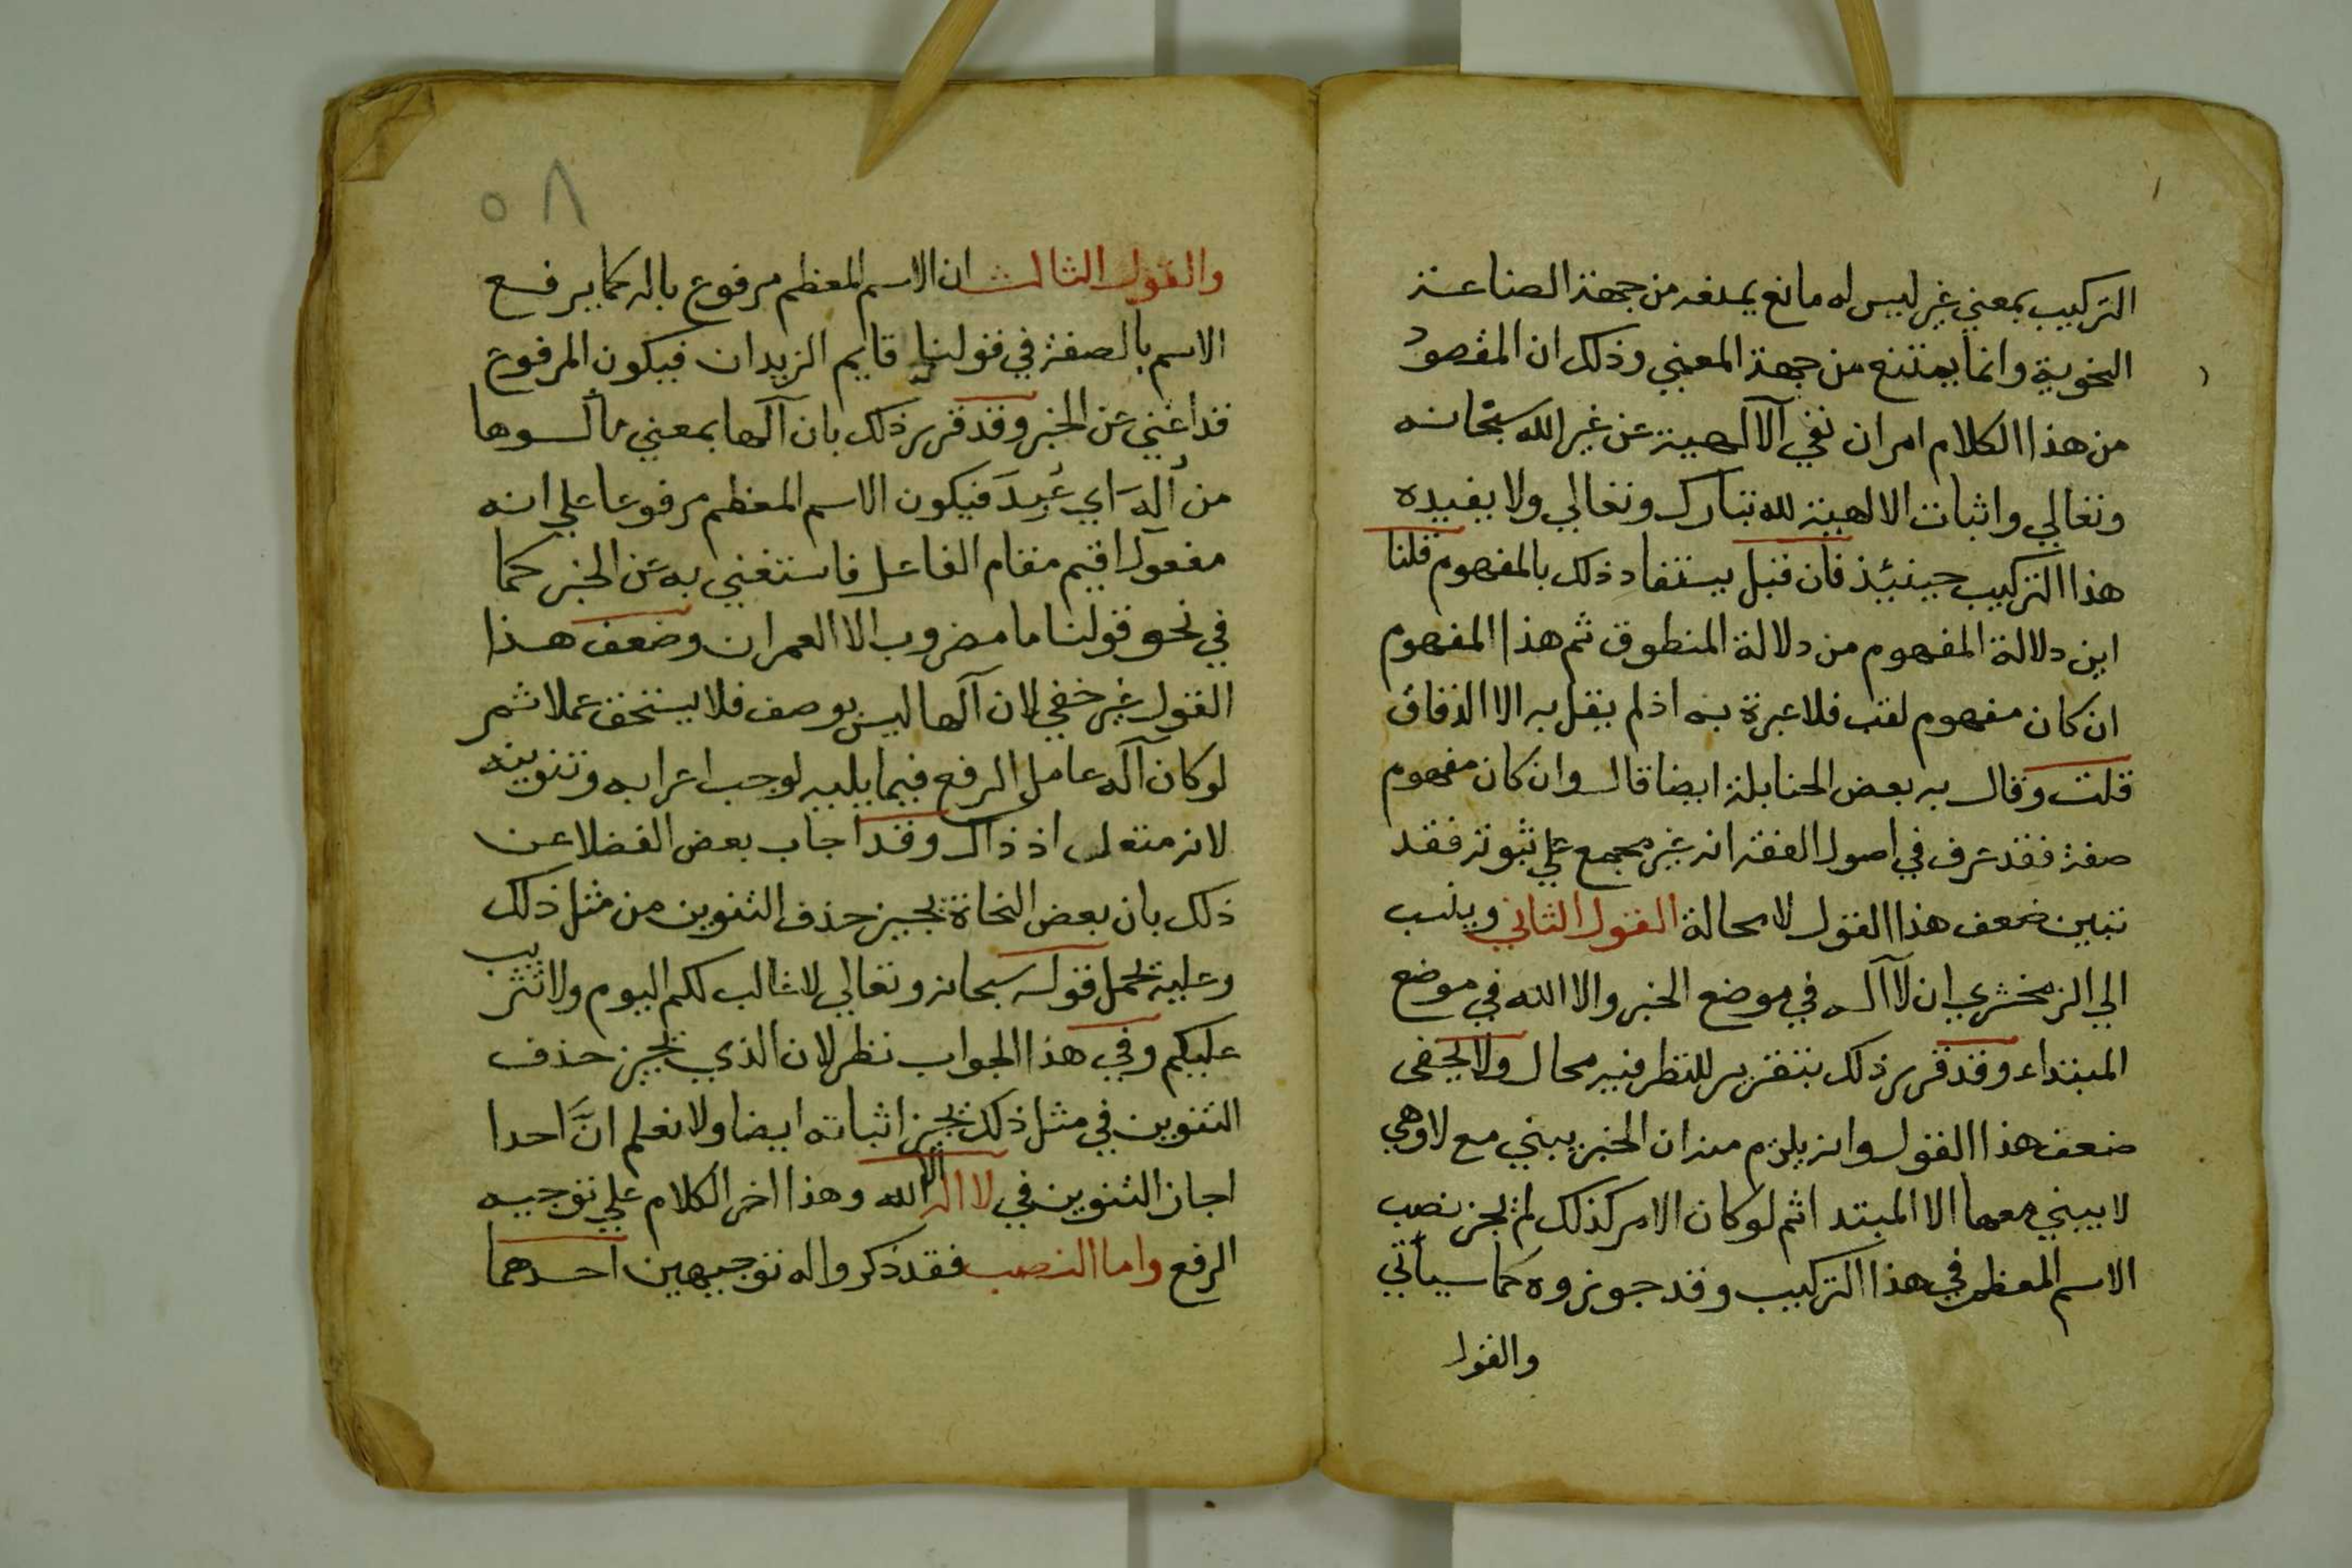 التركيب بمعني غير ليس له مانع يمنعه من جهة الصناعة
النحوية وانما يمتنع من جهة المعني وذلك ان المقصود
من هذا الكلام امران نفي الآلهية عن غير الله سبحانه
وتعالي واثبات الالهية لله تبارك وتعالي ولا يفيده
هذا التركيب حينيئذ فان قيل يستفاد ذلك بالمفهوم قلنا
اين دلالة المفهوم من دلالة المنطوق ثم هذا المفهوم
ان كان مفهوم لقب فلا عبرة به اذ لم يقل به الا الدقاق
قلت وقال به بعض الحنابلة ايضا قال وان كان مفهوم
صفة فقد عرف في اصول الفقه انه غير مجمع علي ثبوته فقد
تبين ضعف هذا القول لا محالة القول الثاني وينسب
الي الزمخشري ان لا آله في موضع الخبر والا الله في موضع
المبتداء وقد قرر ذلك بتقرير للنظر فيه مجال ولا يخفى
ضعف هذا القول وانه يلزم منه ان الخبر يبني مع لا وهي
لا يبني معها الا المبتدا ثم لو كان الامر كذلك لم يجز نصب
الاسم المعظم في هذا التركيب وقد جوزوه كما سيأتي
والقول
٥٨
والقول الثالث ان الاسم المعظم مرفوع باله كما يرفع
الاسم بالصفة في قولنا قايم الزيدان فيكون المرفوع
قد اغني عن الخبر وقد قرر ذلك بان آلها بمعني مألوها
من أله اي عُبِدَ فيكون الاسم المعظم مرفوعا علي انه
مفعول اقيم مقام الفاعل فاستغني به عن الخبر كما
في نحو قولنا ما مضروب الا العمران وضعف هذا
القول غير خفي لان آلها ليس بوصف فلا يستحق عملا ثم
لو كان آله عامل الرفع فيما يليه لوجب اعرابه وتنوينه
لانه مطول اذ ذاك وقد اجاب بعض الفضلا عن
ذلك بان بعض النحاة يجيز حذف التنوين من مثل ذلك
وعليه يحمل قوله سبحانه وتعالي لا غالب لكم اليوم ولا تثريب
عليكم وفي هذا الجواب نظر لان الذي يجيز حذف
التنوين في مثل ذلك يجيز اثباته ايضا ولا نعلم انَّ احدا
اجاز التنوين في لا اله الا الله وهذا اخر الكلام علي توجيه
الرفع واما النصب فقد ذكروا له توجيهين احدهما